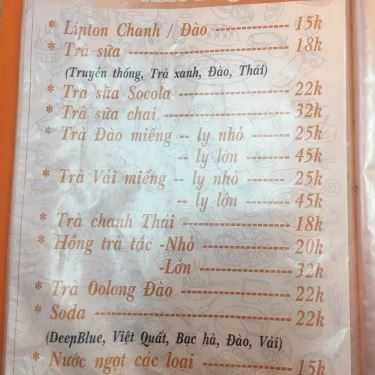 * Lipton Chanh / Đào ---------- 15k
* Trà sữa ---------------------- 18k
(Truyền thống, Trà xanh, Đào, Thái)
* Trà sữa Socola --------------- 22k
* Trà sữa chai ----------------- 32k
* Trà Đào miếng -- ly nhỏ ------ 25k
-- ly lớn ------ 45k
* Trà Vải miếng -- ly nhỏ ------ 25k
-- ly lớn ------ 45k
* Trà chanh Thái --------------- 18k
* Hồng trà tắc -Nhỏ ------------ 20k
-Lớn ------------ 32k
* Trà Oolong Đào --------------- 22k
* Soda ------------------------- 22k
(DeepBlue, Việt Quất, Bạc hà, Đào, Vải)
* Nước ngọt các loại ----------- 15k